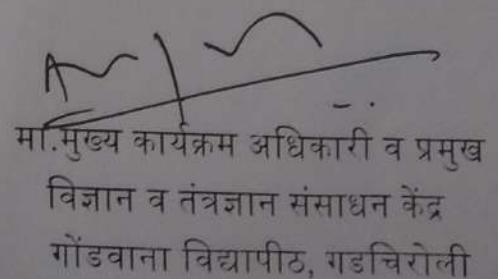 मा.मुख्य कार्यक्रम अधिकारी व प्रमुख
विज्ञान व तंत्रज्ञान संसाधन केंद्र
गोंडवाना विद्यापीठ, गडचिरोली